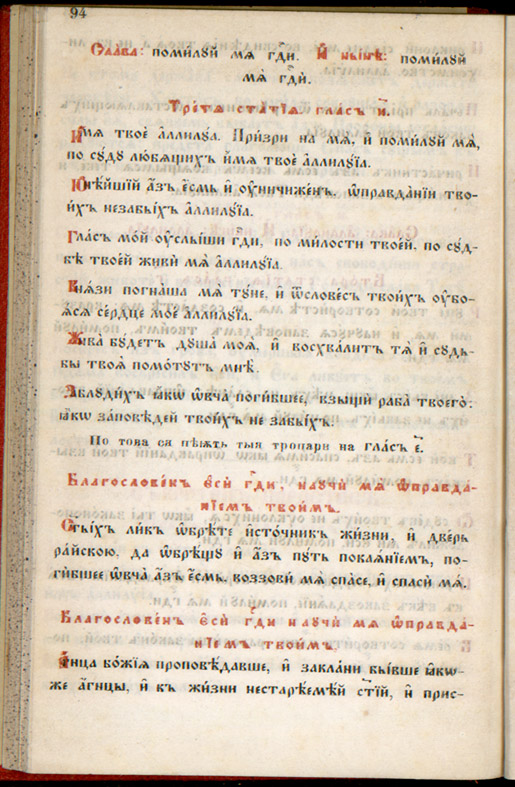 94
Сла́ва: поми́луй мѧ̀ гд҃и. И҆ ны́нѣ: поми́луй
мѧ̀ гд҃и.
Тре́тѧ ста́тїѧ гла́съ и҃.
И҆́мѧ твоѐ а҆ллилꙋ́а. При́зри на мѧ̀, и҆ поми́лꙋй мѧ̀,
по сꙋдꙋ̀ лю́бѧщихъ и҆́мѧ твоѐ а҆ллилꙋ́їа.
Ю҆нѣ́йшїй а҆́зъ є҆́смь и҆ ᲂу҆ничиже́н. ѡ҆правда́нїи тво-
и́хъ незабы́хъ а҆ллилꙋ́їа.
Гла́съ мо́й ᲂу҆слы́ши гд҃и, по ми́лости твое́й, по сꙋд-
бѣ̀ твое́й живѝ мѧ̀ а҆ллилꙋ́їа.
Кнѧ́зи погна́ша мѧ̀ тꙋ́не, и҆ ѿслове́съ твои́хъ ᲂу҆бо-
ѧ́сѧ се́рдце моѐ а҆ллилꙋ́їа.
Жива̀ бꙋ́детъ дꙋша̀ моѧ̀, и҆ восхва́литъ тѧ̀ и҆ сꙋдь-
бы̀ твоѧ̀ помо́гꙋтъ мнѣ̀.
Заблꙋди́хъ ꙗ҆́кѡ ѻ҆вча̀ поги́бшее, взыщѝ раба̀ твоего̀:
ꙗ҆́кѡ за́повѣдей твои́хъ не забы́хъ.
По това ся пѣѭтъ тыѧ тропари на гла́съ є҃.
Благослове́нъ є҆сѝ гд҃и, наꙋчи́ мѧ ѡ҆правда́-
нїемъ твои́мъ.
Ст҃ы́хъ ли́къ ѡ҆брѣ́те и҆сто́чникъ жи́зни, и҆ две́рь
ра́йскою, да ѡ҆брѧ́щꙋ и҆ а҆́зъ пꙋ́ть покаѧ́нїемъ, по-
ги́бшее ѻ҆вча̀ а҆́зъ є҆́смь, воззови́ мѧ̀ спа́се, и҆ спаси́ мѧ̀.
Благослове́нъ є҆сѝ гд҃и наꙋчи́ мѧ ѡ҆правда́-
нїемъ твои́мъ.
А҆́гнца бо́жїѧ проповѣ́давше, и҆ закла́ни бы́вше ꙗ҆́кѡ-
же а҆́гнцы, и҆ къ жи́зни нестарѣ́емѣй ст҃ї́й, и҆ прис-